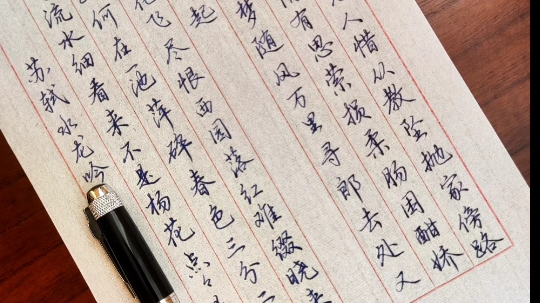 人惜从教坠抛家傍路
有思荣损柔肠困酣娇
梦随风万里寻郎去处又
起
飞尽恨西园落红难缀晓来
何在一池萍碎春色三分二
流水细看来不是杨花点点
苏轼水龙吟